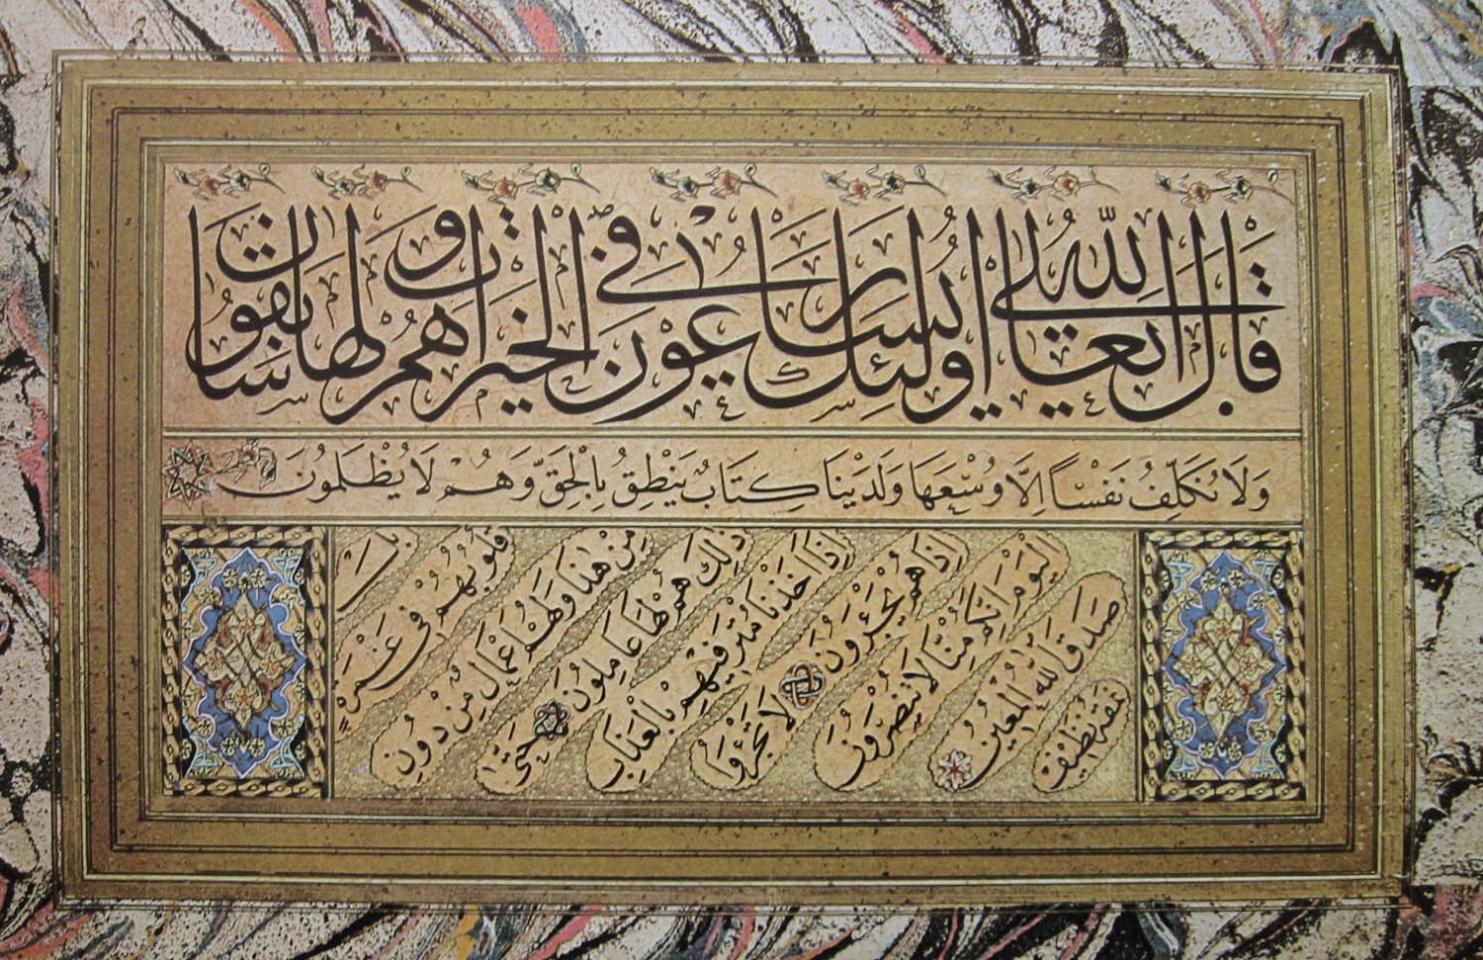 قال الله تعالى اولئك يسارعون في الخيرات وهم لها سابقون
وَلَا نُكَلِّفُ نَفْسًا اِلَّا وُسْعَهَا وَلَدَيْنَا كِتَابٌ يَنْطِقُ بِالْحَقِّ وَهُمْ لَا يُظْلَمُونَ
بل
قلوبهم في غمرة
من هذا ولهم اعمال من دون
ذلك هم لها عاملون حتى
اذا اخذنا مترفيهم بالعذاب
اذا هم يجئرون لا تجئروا
اليوم انكم منا لا تنصرون
صدق الله المعين
نمقه نظيف